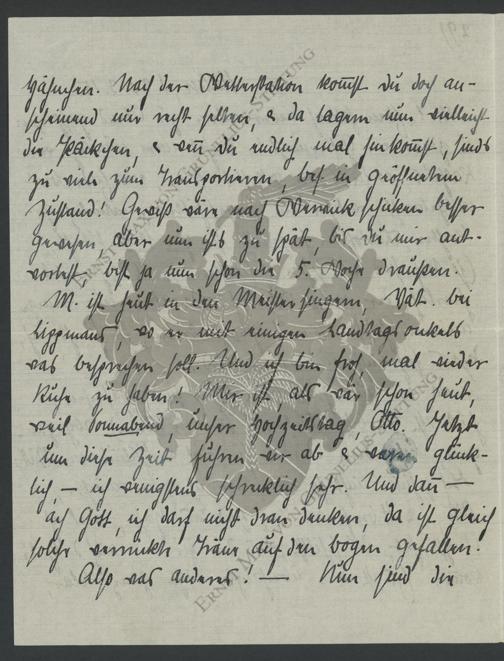 Häschen. Nach der Wetterstation kom̄st du doch an-
scheinend nur recht selten, & da lagern nun vielleicht
die Päckchen, & wen̄ du endlich mal hinkom̄st, sinds
zu viele zum Transportieren, bes. in geöffnetem
Zustand! Gewiß wäre nach Werwick schicken besser
gewesen, aber nun ists zu spät, bis du mir ant-
wortest bist ja nun schon die 5. Woche draußen.
M. ist heut in den Meistersingern, Vat. bei
Lippmans, wo er mit einigen Landtagsonkels
was besprechen soll. Und ich bin froh, mal wieder
Ruhe zu haben! Mir ist als wär schon heut,
weil Sonnabend, unser Hochzeitstag, Otto. Jetzt
um diese Zeit fuhren wir ab & waren glück-
lich, — ich wenigstens schrecklich sehr. Und dan̄ —
ach Gott, ich darf nicht dran denken, da ist gleich
solche verrückte Träne auf den Bogen gefallen.
Also was anderes! — Nun sind die
ERNST MORITZ CORNELIUS-STIFTUNG